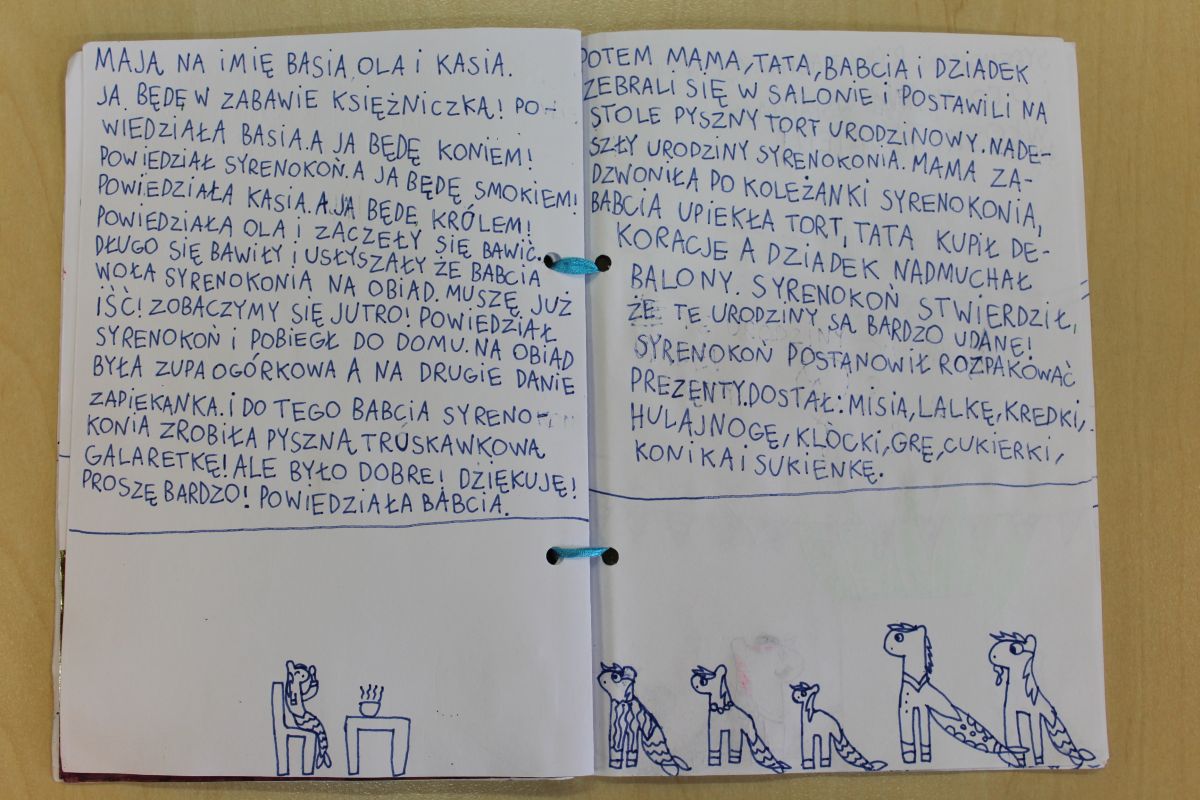 MAJĄ NA IMIĘ BASIA, OLA I KASIA.
JA BĘDĘ W ZABAWIE KSIĘŻNICZKĄ! PO-
WIEDZIAŁA BASIA. A JA BĘDĘ KONIEM!
POWIEDZIAŁ SYRENOKOŃ. A JA BĘDĘ SMOKIEM!
POWIEDZIAŁA KASIA. A JA BĘDĘ KRÓLEM!
POWIEDZIAŁA OLA I ZACZEŁY SIĘ BAWIĆ.
DŁUGO SIĘ BAWIŁY I USŁYSZAŁY ŻE BABCIA
WOŁA SYRENOKONIA NA OBIAD. MUSZĘ JUŻ
IŚĆ! ZOBACZYMY SIĘ JUTRO! POWIEDZIAŁ
SYRENOKOŃ I POBIEGŁ DO DOMU. NA OBIAD
BYŁA ZUPA OGÓRKOWA A NA DRUGIE DANIE
ZAPIEKANKA. I DO TEGO BABCIA SYRENO-
KONIA ZROBIŁA PYSZNĄ TRUSKAWKOWĄ
GALARETKĘ! ALE BYŁO DOBRE! DZIĘKUJĘ!
PROSZĘ BARDZO! POWIEDZIAŁA BABCIA.
POTEM MAMA, TATA, BABCIA I DZIADEK
ZEBRALI SIĘ W SALONIE I POSTAWILI NA
STOLE PYSZNY TORT URODZINOWY. NADE-
SZŁY URODZINY SYRENOKONIA. MAMA ZA-
DZWONIŁA PO KOLEŻANKI SYRENOKONIA,
BABCIA UPIEKŁA TORT, TATA KUPIŁ DE-
KORACJE A DZIADEK NADMUCHAŁ
BALONY. SYRENOKOŃ STWIERDZIŁ,
ŻE TE URODZINY SĄ BARDZO UDANE!
SYRENOKOŃ POSTANOWIŁ ROZPAKOWAĆ
PREZENTY. DOSTAŁ: MISIA, LALKĘ, KREDKI,
HULAJNOGĘ, KLOCKI, GRĘ, CUKIERKI,
KONIKA I SUKIENKĘ.